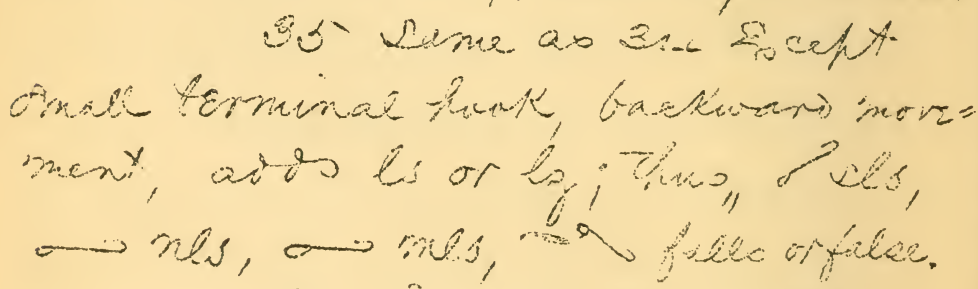 35 Same as 3rd Except
small terminal hook, backward move=
ment, adds ls or lz; thus,, sls,
nls, mls, falls or false.